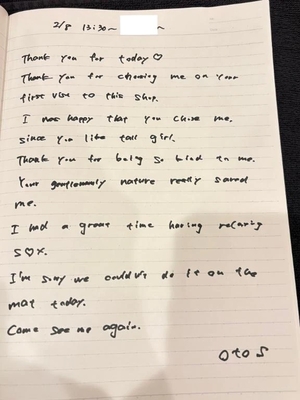 2/8 13:30~ ~
Thank you for today♡
Thank you for choosing me on your
first visit to this shop.
I was happy that you chose me.
since you like tall girl.
Thank you for being so kind to me.
Your gentlemanly nature really saved
me.
I had a great time having relaxing
s♡x.
I'm sorry we couldn't do it on the
mat today.
Come see me again.
O to S